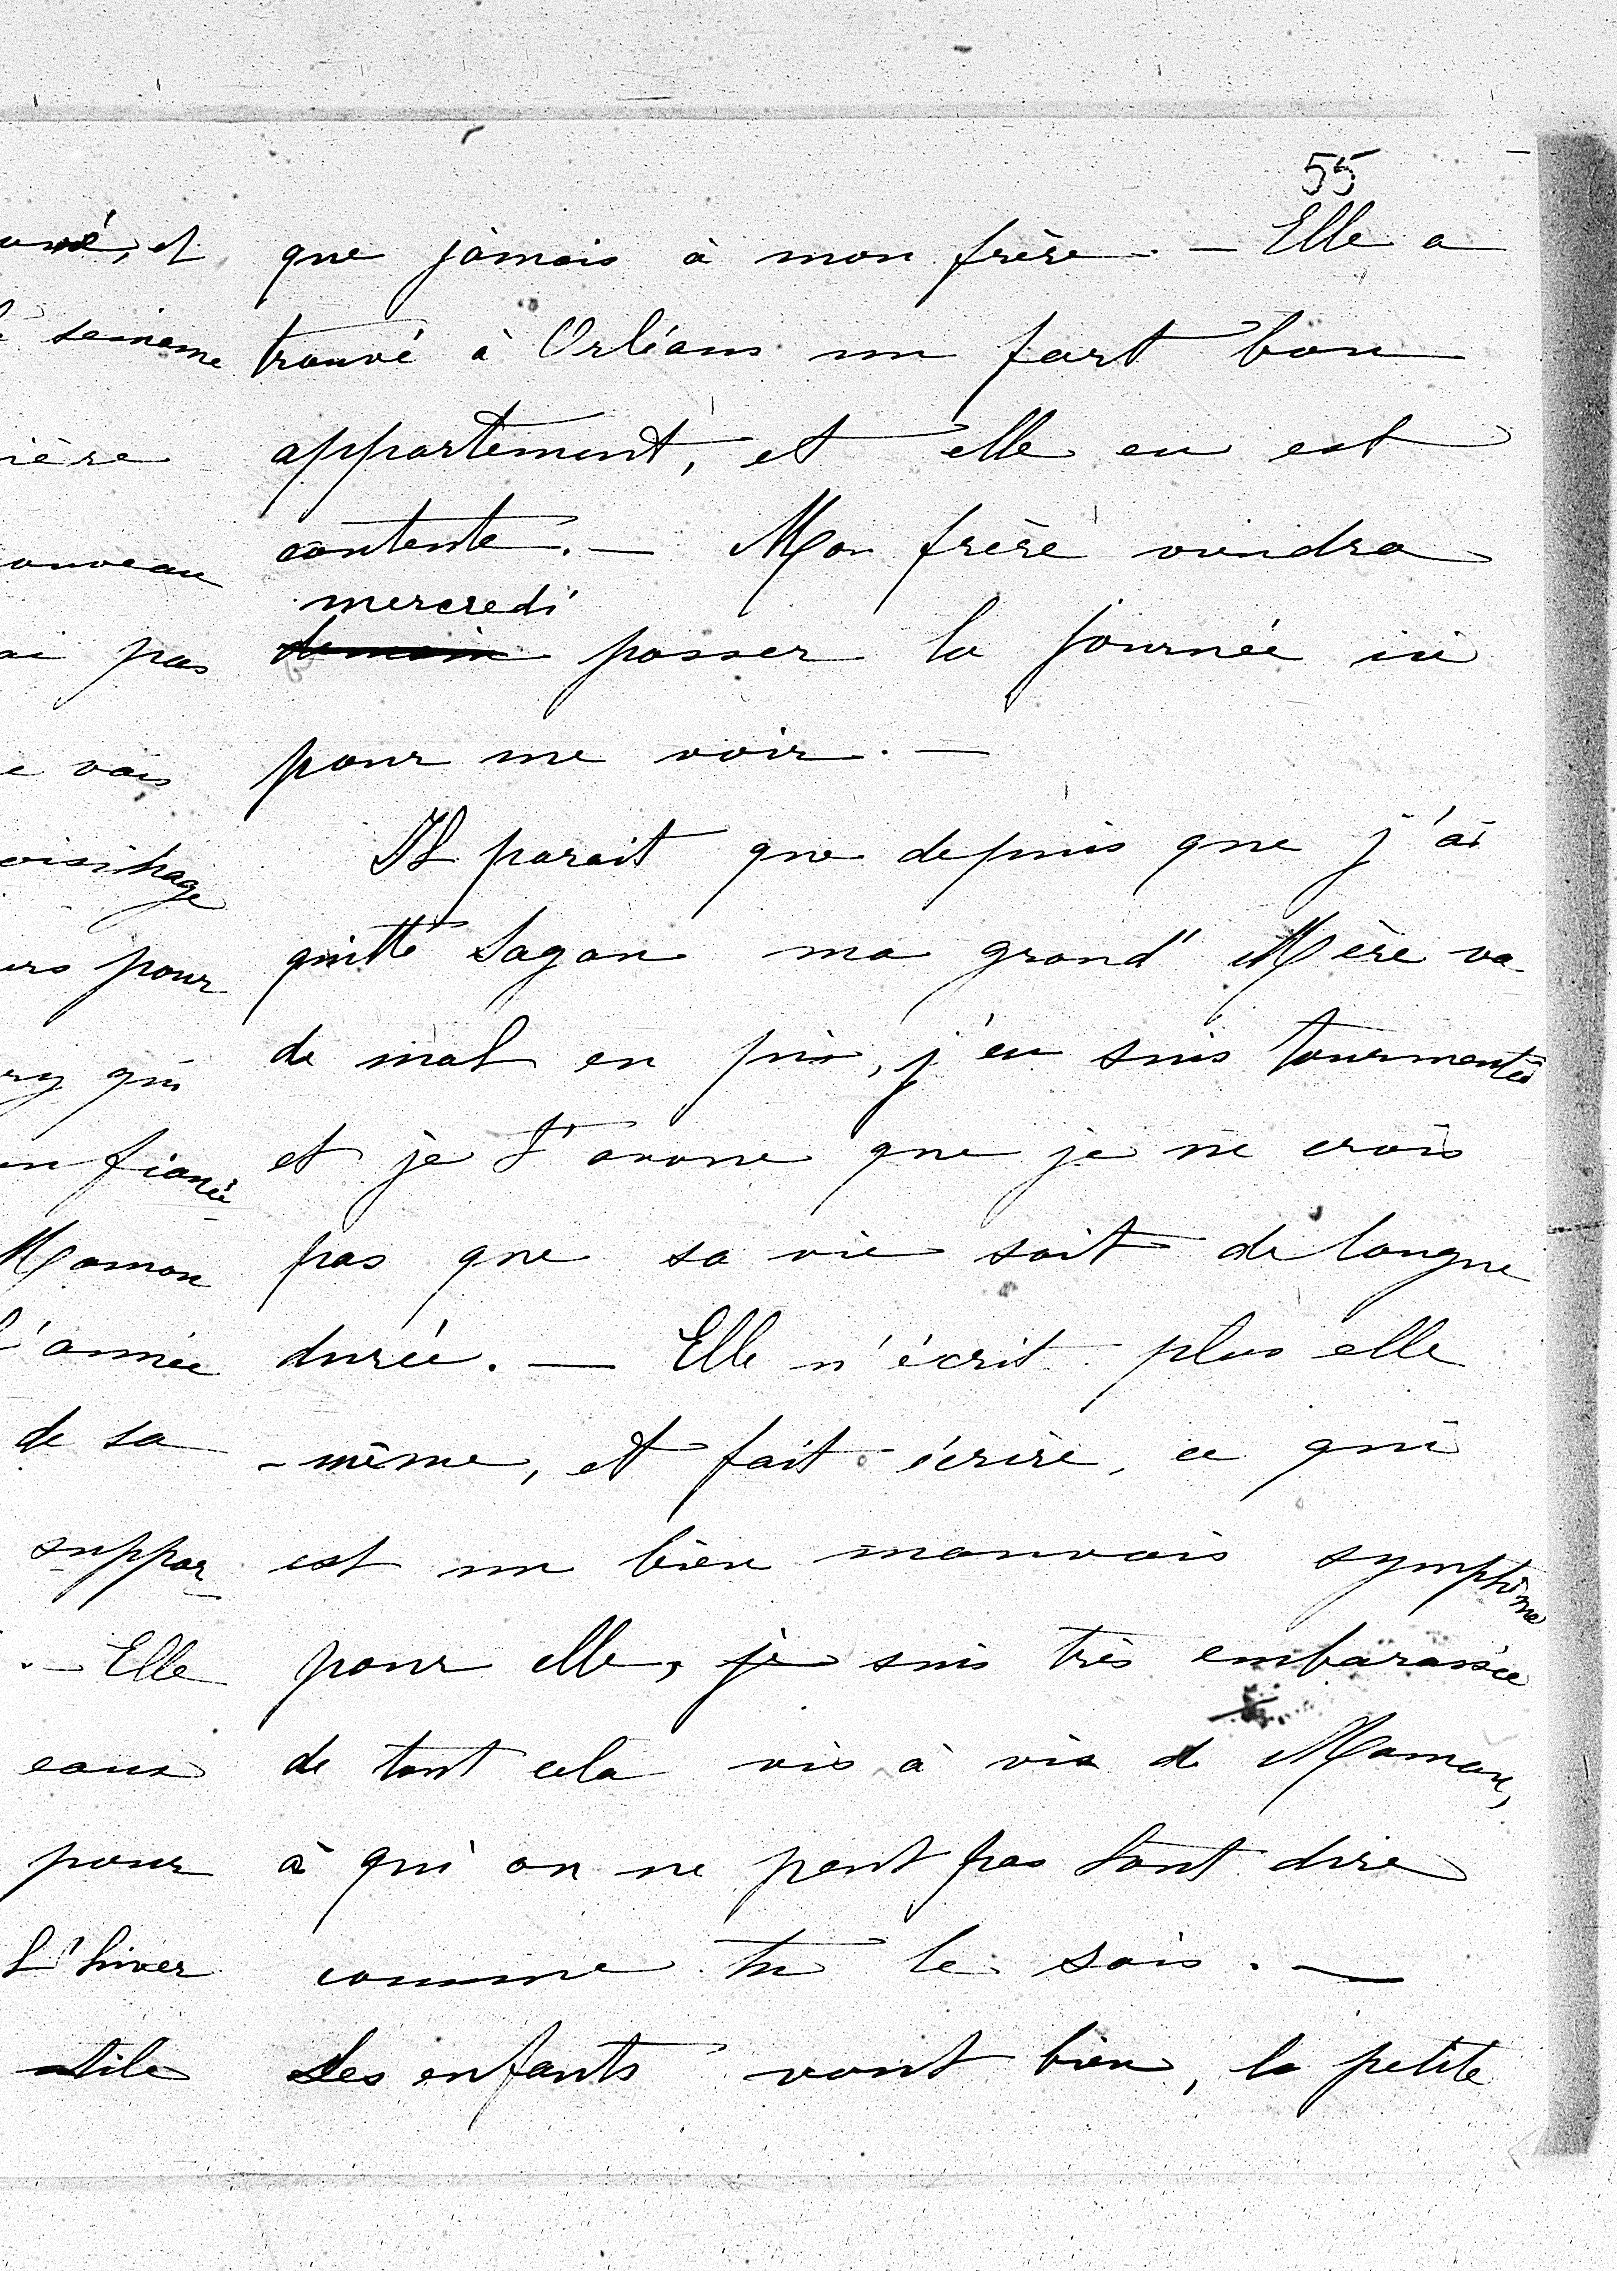 55
que jamais à mon frère. — Elle a
trouvé à Orléans un fort bon
appartement, et elle en est
contente. — Mon frère viendra
mercredi
demain passer la journée ici
pour me voir. —
Il parait que depuis que j'ai
quitté Sagan ma grand' Mère va
de mal en pis, j'en suis tourmentée
et je t'avoue que je ne crois
pas que sa vie soit de longue
durée. — Elle n'écrit plus elle
-même, et fait écrire, ce qui
est un bien mauvais symptôme
pour elle, je suis très embarassée
de tout cela vis à vis de Maman,
à qui on ne peut pas tout dire
comme tu le sais. —
Les enfants vont bien, la petite
et
semaine
ière
ouveau
ai pas
e vais
oisinage
urs pour
ry qui
fiancée
Maman
l'année
de sa
suppor
. — Elle
eaux
pour
L'hiver